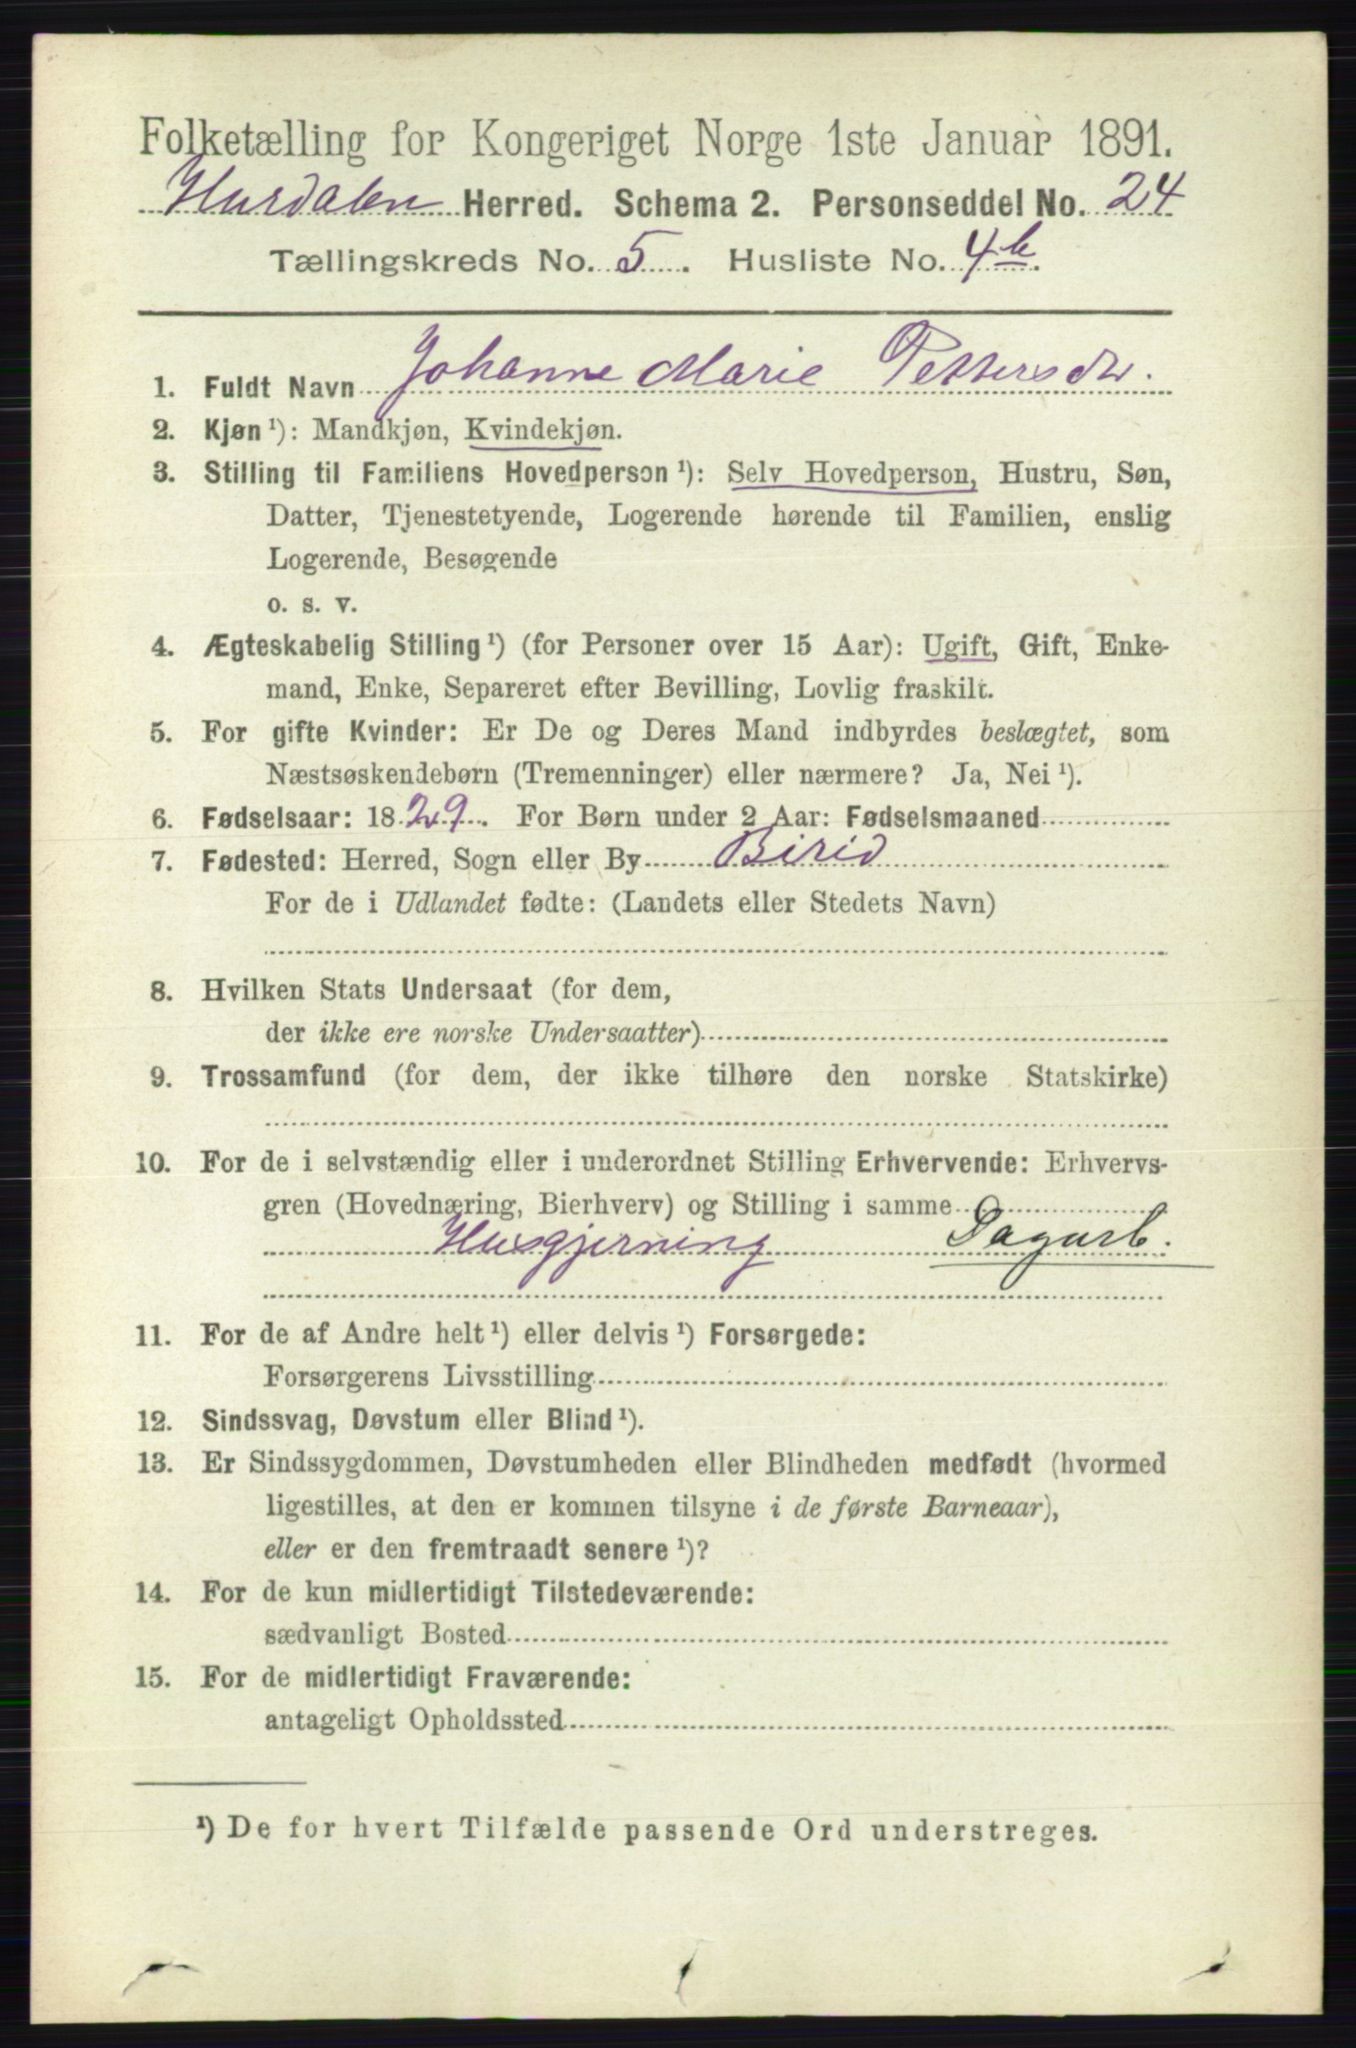 Folketælling for Kongeriget Norge 1ste Januar 1891.
Hurdalen Herred. Schema 2. Personseddel No. 24
Tællingskreds No. 5. Husliste No. 4b.
1. Fuldt Navn Johanne Marie Pettersdtr.
2. Kjøn ¹): Mandkjøn, Kvindekjøn.
3. Stilling til Familiens Hovedperson ¹): Selv Hovedperson, Hustru, Søn,
Datter, Tjenestetyende, Logerende hørende til Familien, enslig
Logerende, Besøgende
o. s. v.
4. Ægteskabelig Stilling ¹) (for Personer over 15 Aar): Ugift, Gift, Enke-
mand, Enke, Separeret efter Bevilling, Lovlig fraskilt.
5. For gifte Kvinder: Er De og Deres Mand indbyrdes beslægtet, som
Næstsøskendebørn (Tremenninger) eller nærmere? Ja, Nei ¹).
6. Fødselsaar: 1829. For Børn under 2 Aar: Fødselsmaaned
7. Fødested: Herred, Sogn eller By Birid
For de i Udlandet fødte: (Landets eller Stedets Navn)
8. Hvilken Stats Undersaat (for dem,
der ikke ere norske Undersaatter)
9. Trossamfund (for dem, der ikke tilhøre den norske Statskirke)
10. For de i selvstændig eller i underordnet Stilling Erhvervende: Erhvervs-
gren (Hovednæring, Bierhverv) og Stilling i samme
Husgjerning Dagarb.
11. For de af Andre helt ¹) eller delvis ¹) Forsørgede:
Forsørgerens Livsstilling
12. Sindssvag, Døvstum eller Blind ¹).
13. Er Sindssygdommen, Døvstumheden eller Blindheden medfødt (hvormed
ligestilles, at den er kommen tilsyne i de første Barneaar),
eller er den fremtraadt senere ¹)?
14. For de kun midlertidigt Tilstedeværende:
sædvanligt Bosted
15. For de midlertidigt Fraværende:
antageligt Opholdssted
¹) De for hvert Tilfælde passende Ord understreges.